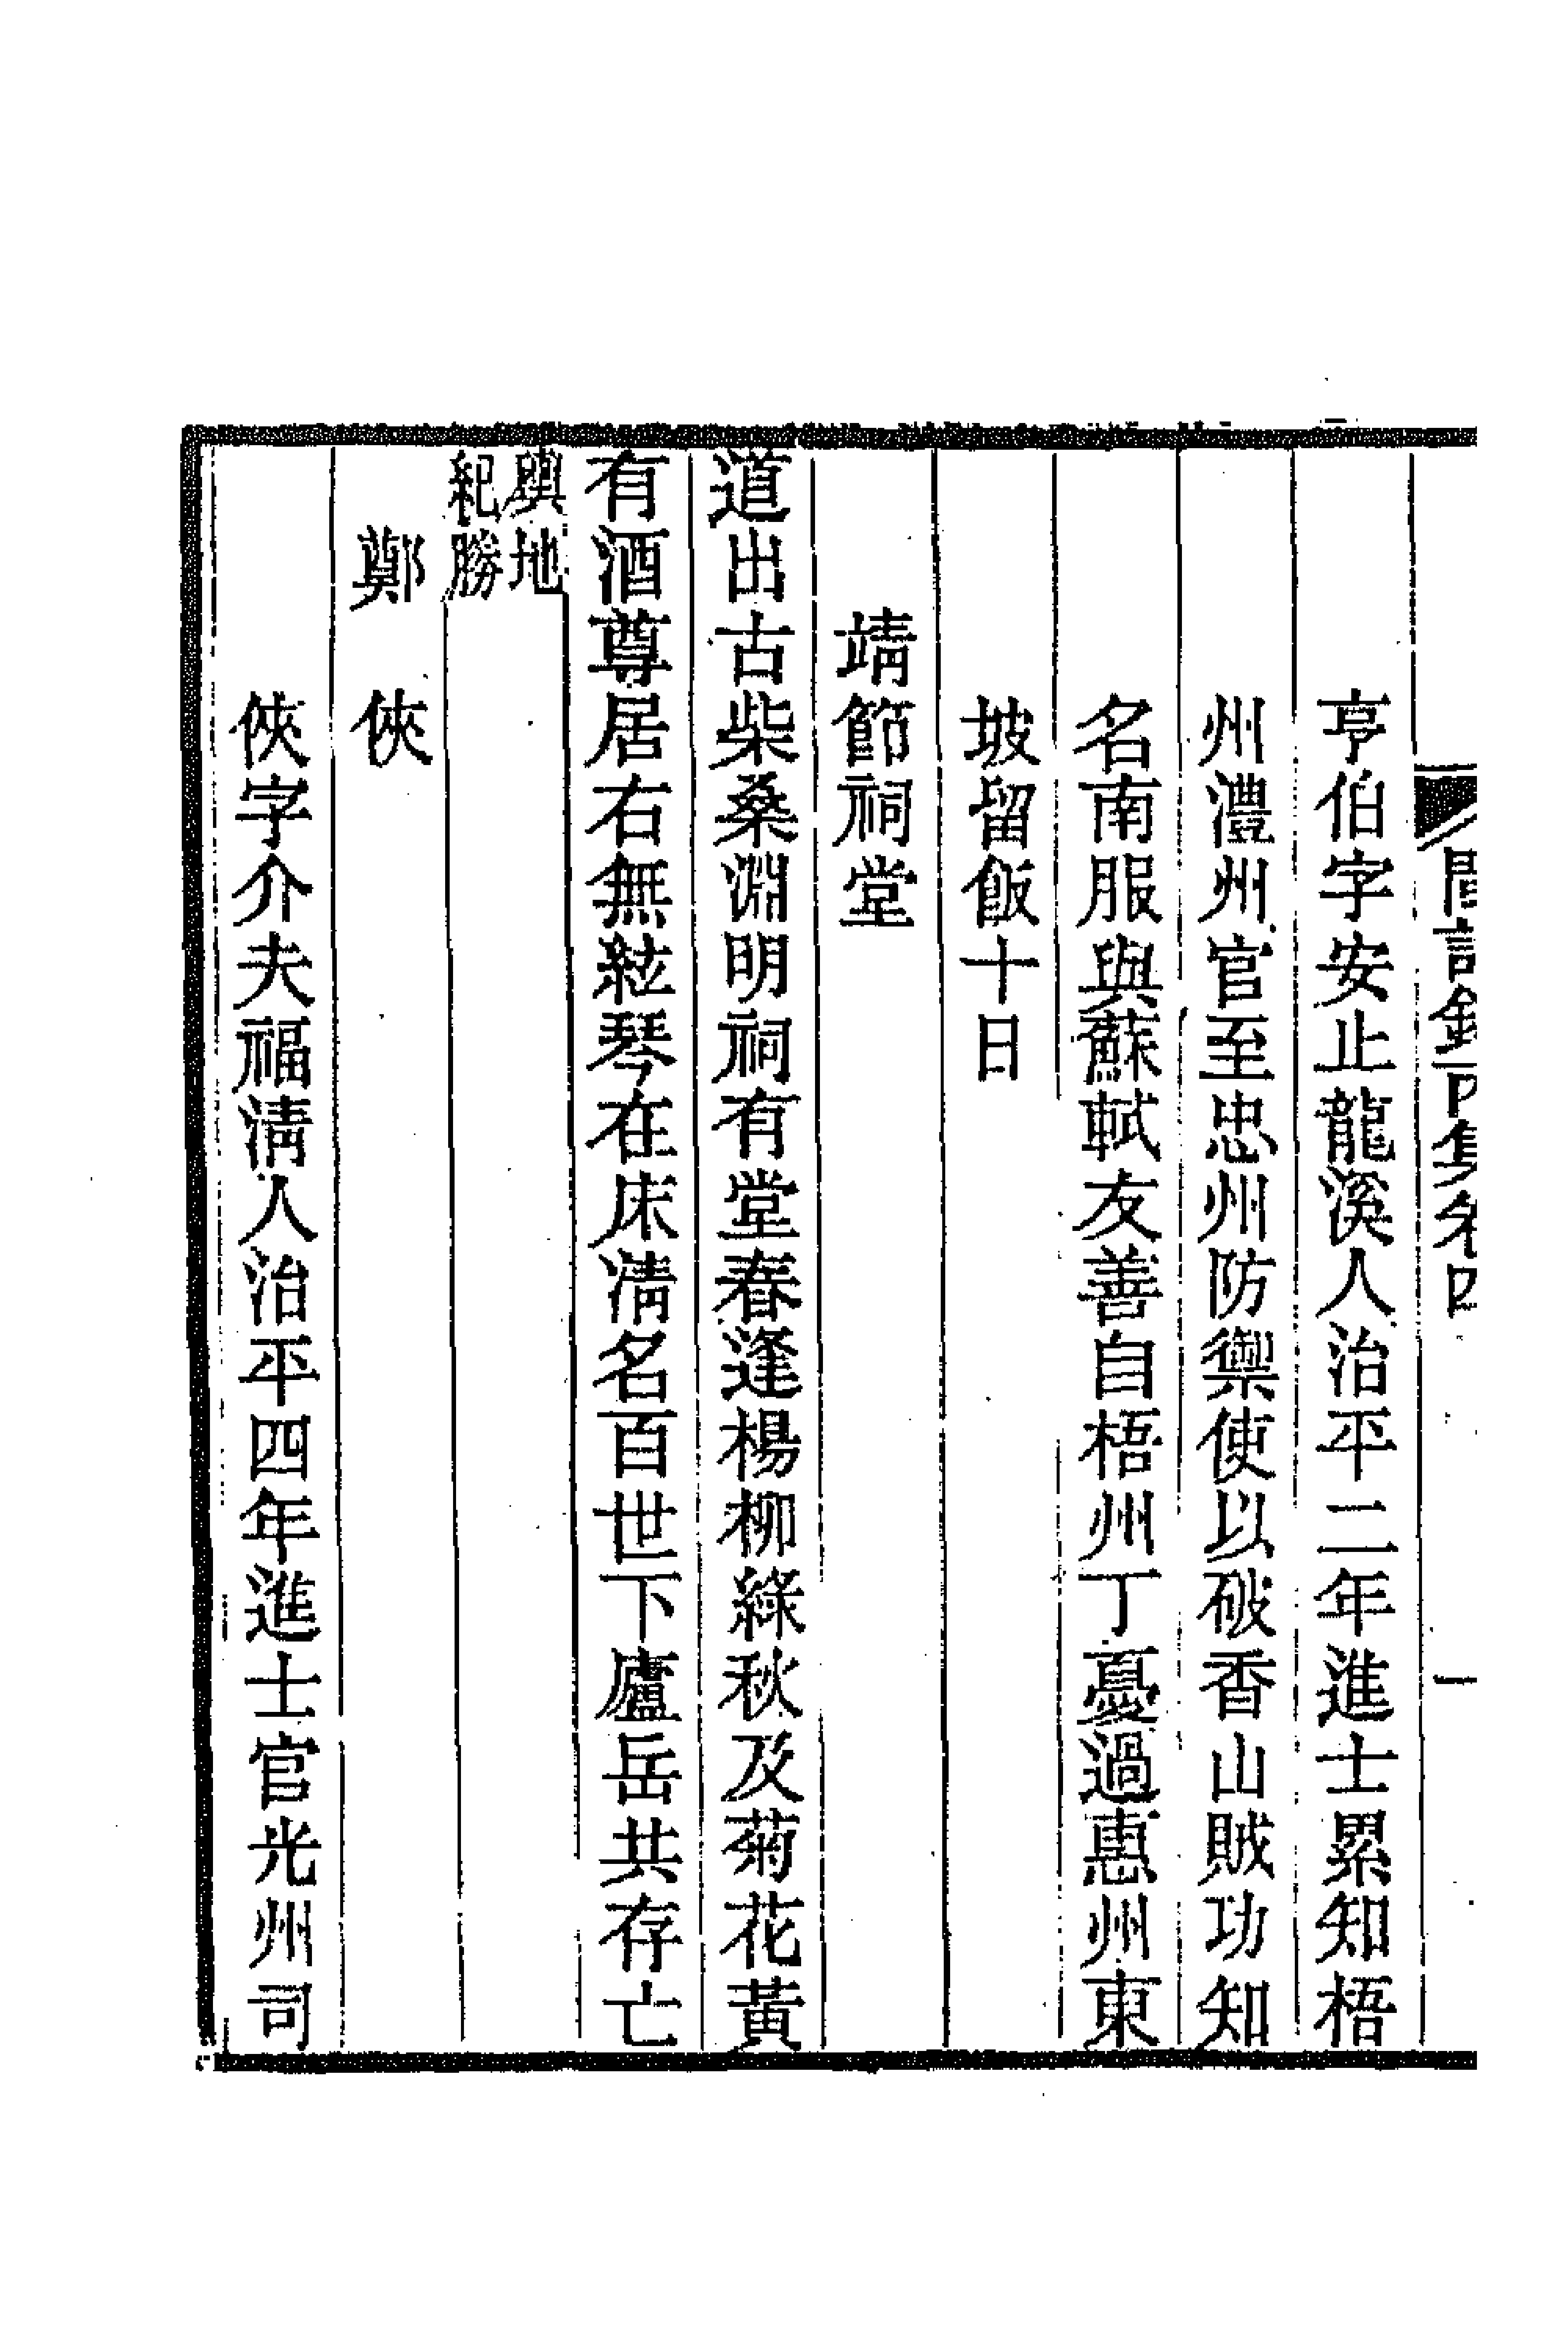 閩詩錄丙集卷四
一
亨伯字安止龍溪人治平二年進士累知梧
州澧州官至忠州防禦使以破香山賊功知
名南服與蘇軾友善自梧州丁憂過惠州東
坡留飯十日
靖節祠堂
道出古柴桑淵明祠有堂春逢楊柳綠秋及菊花黃
有酒尊居右無絃琴在床清名百世下廬岳共存亡
輿地
紀勝
鄭 俠
俠字介夫福清人治平四年進士官光州司